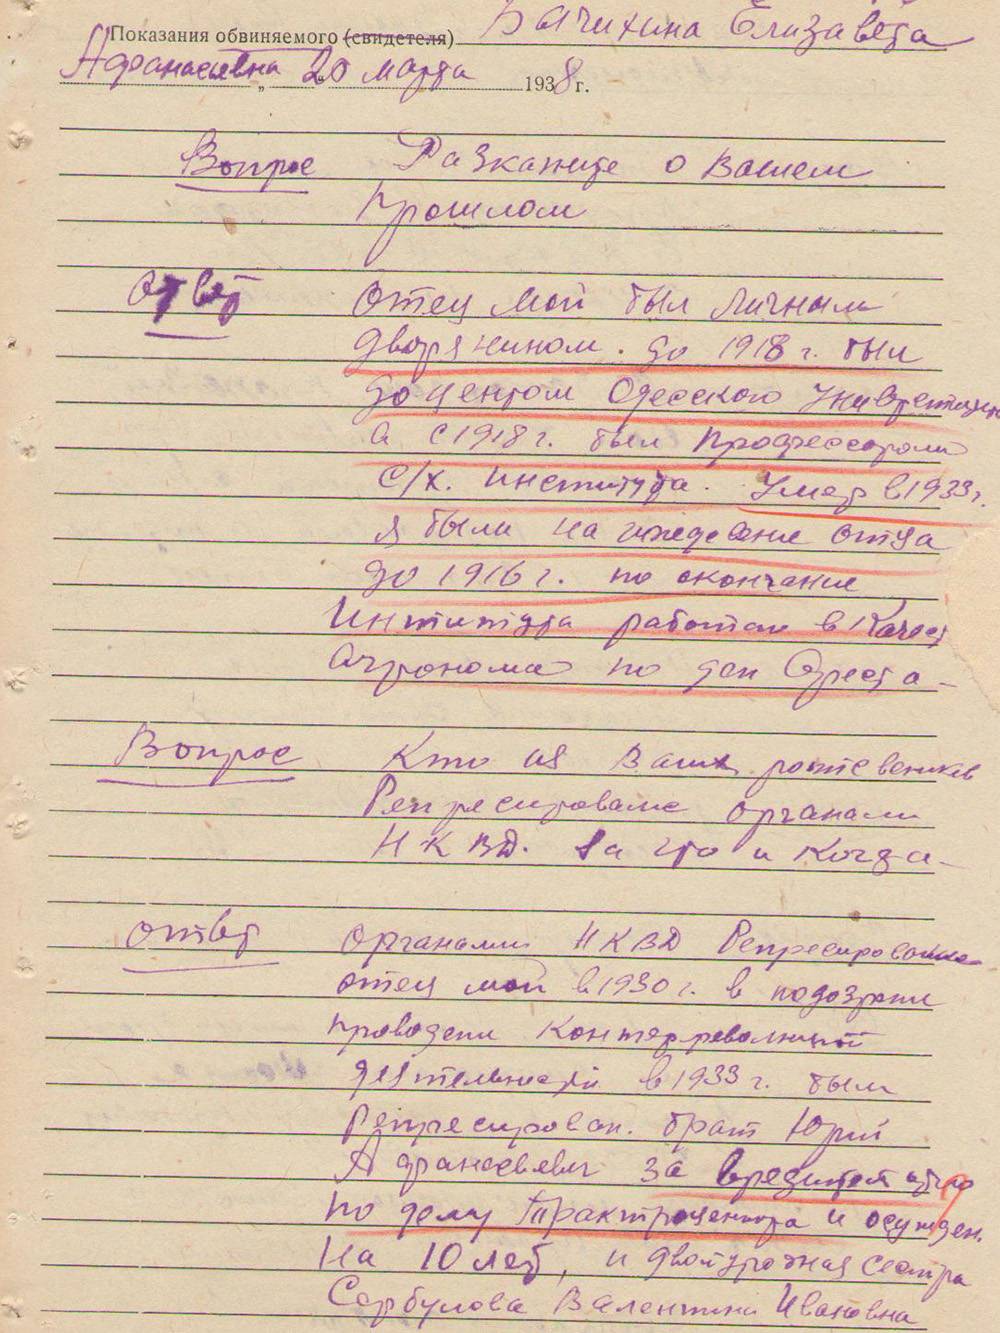 Показания обвиняемого (свидетеля) Бычихина Елизавета
Афанасьевна „20“ марта 1938 г.
Вопрос Разкажите о Вашем
прошлом
Ответ Отец мой был личным
дворянином. до 1918 г. был
доцентом Одесского Универститета
а с 1918 г. был профессором
С/х. института. Умер в 1933 г.
я были на иждевение отца
до 1916 г. по окончание
Института работаю в Качест
Агронома по ден Ореста-
Вопрос Кто из Ваших родтсвеников
Репресировалс органами
НКВД. за что и Когда-
ответ Органами НКВД Репресировался
отец мой в 1930 г. в подозрени
проводени Контрреволюцион
деятельности в 1933 г. был
Репресирован. брат Юрий
Афанасьевич за вредительство
по делу Трактроцентра и осужден.
На 10 лет, и двоюродная сестра
Сорбулова Валентина Ивановна